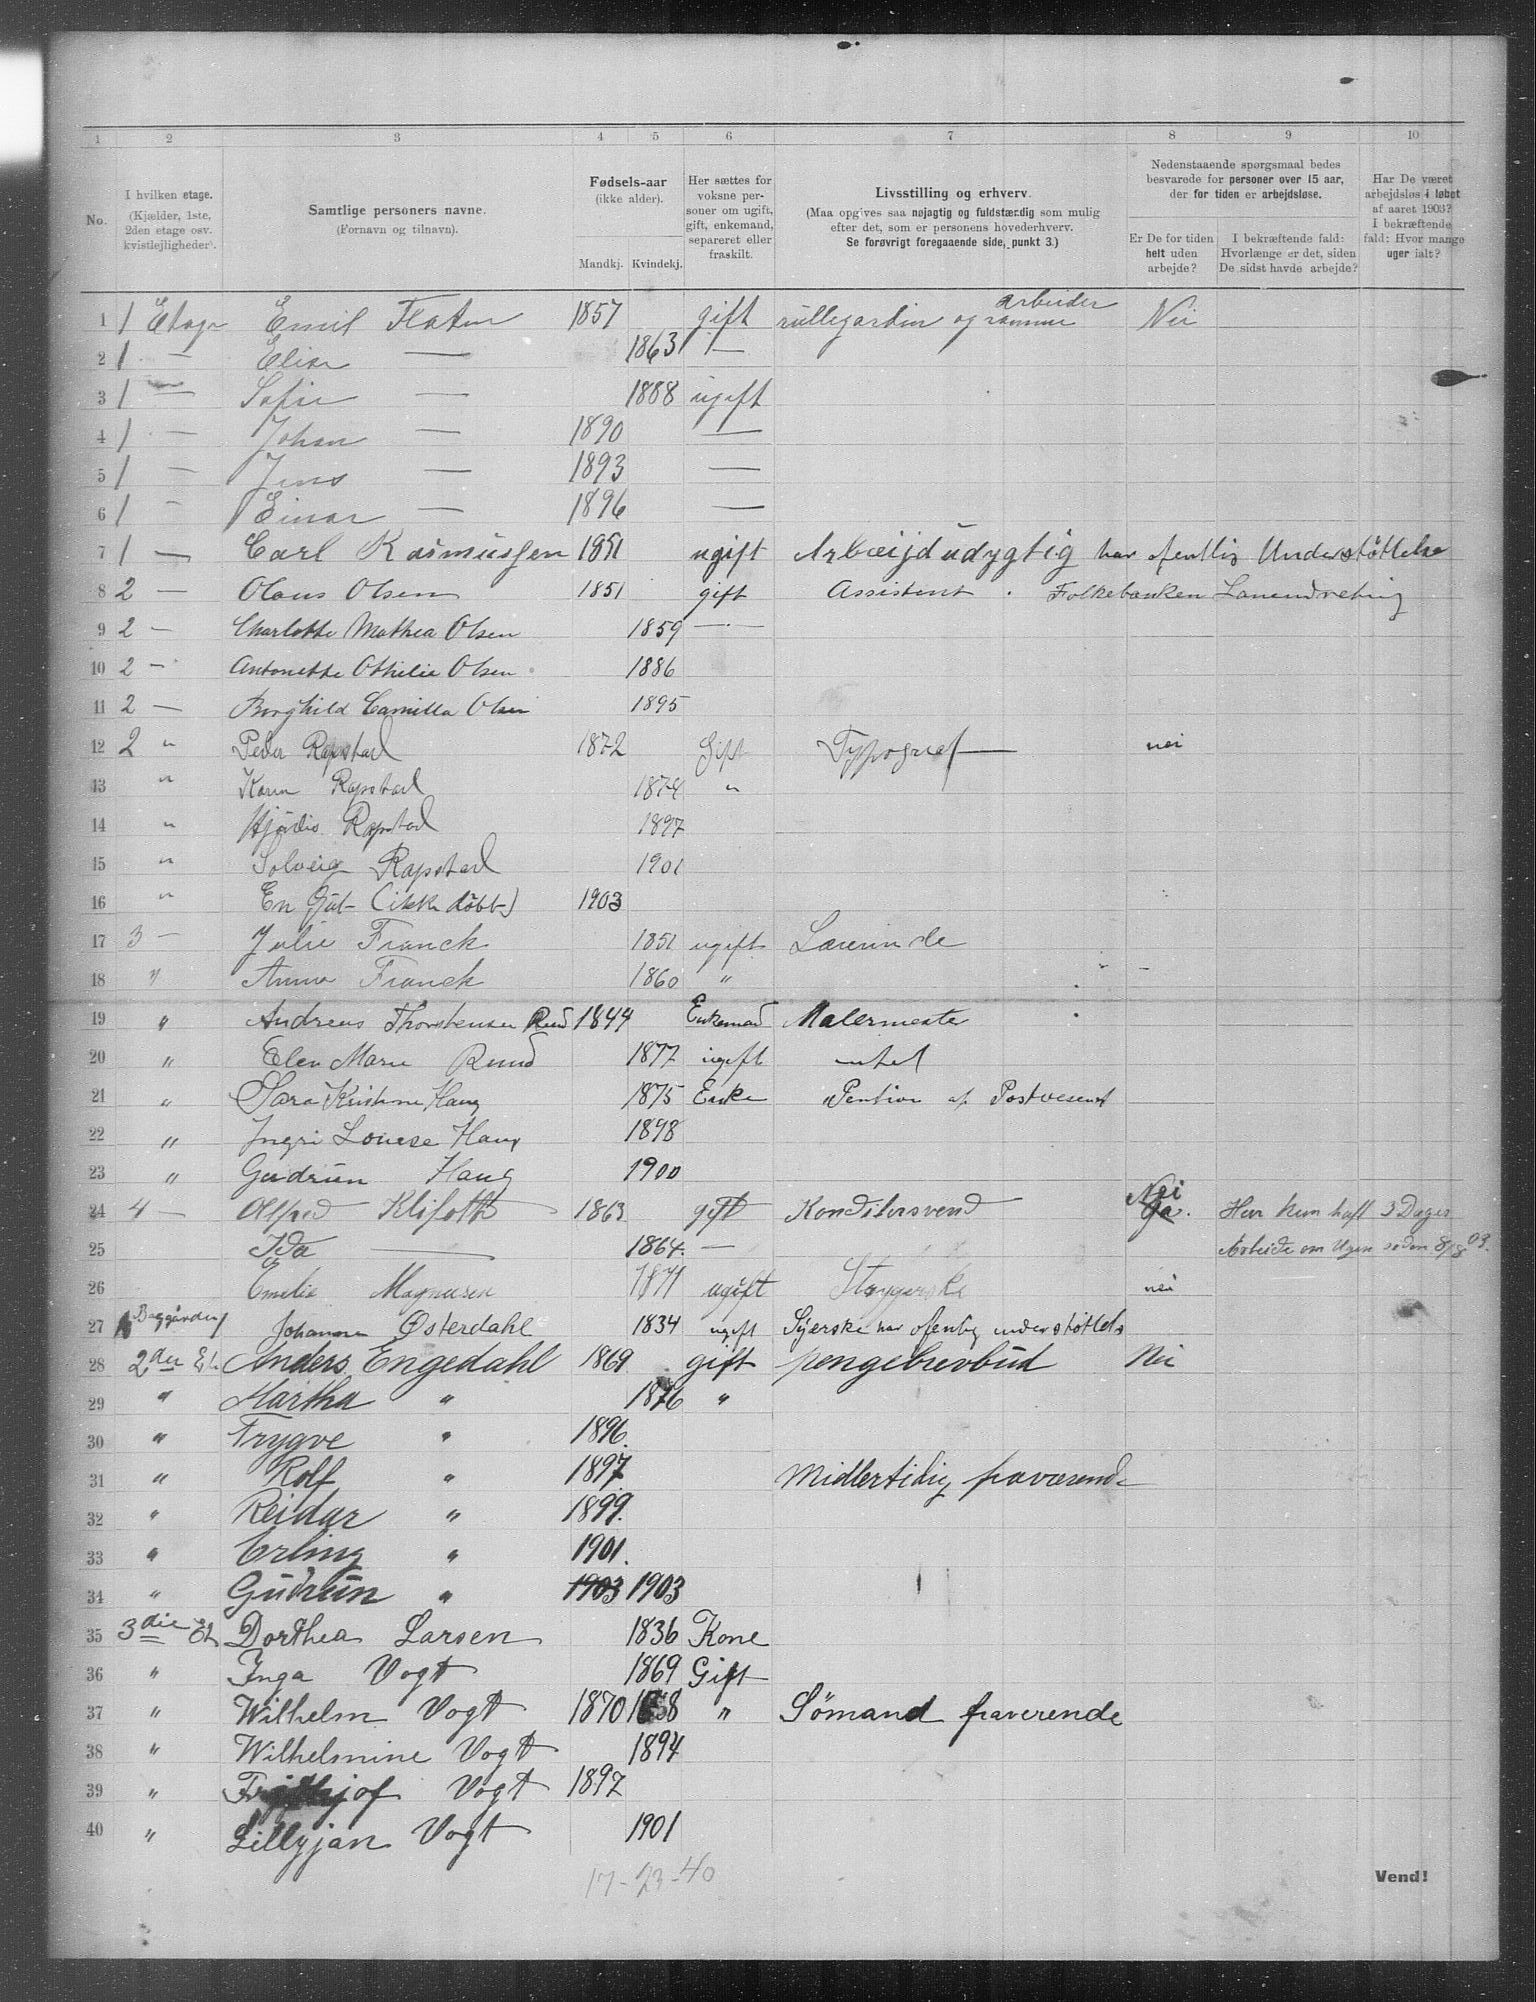 1 2 3 4 5 6 7 8 9 10
No.
I hvilken etage.
(Kjælder, 1ste,
2den etage osv.
kvistlejligheder).
Samtlige personers navne.
(Fornavn og tilnavn).
Fødsels-aar
(ikke alder).
Mandkj. Kvindekj.
Her sættes for
voksne per-
soner om ugift,
gift, enkemand,
separeret eller
fraskilt.
Livsstilling og erhverv.
(Maa opgives saa nøjagtig og fuldstændig som mulig
efter det, som er personens hovederhverv.
Se forøvrigt foregaaende side, punkt 3.)
Nedenstaaende spørgsmaal bedes
besvarede for personer over 15 aar,
der for tiden er arbejdsløse.
Er De for tiden
helt uden
arbejde?
I bekræftende fald:
Hvorlænge er det, siden
De sidst havde arbejde?
Har De været
arbejdsløs i løbet
af aaret 1903?
I bekræftende
fald: Hvor mange
uger ialt?
1 1 Etage Emil Flaten 1857 gift rullegardin og ramme arbeider Nei
2 1 — Elise — 1863 —
3 1 — Sofie — 1888 ugift
4 1 — Johan — 1890 —
5 1 — Jens — 1893 —
6 1 — Einar — 1896 —
7 1 — Carl Rasmussen 1851 ugift Arbeijdudygtig har ofentlig Understøttelse
8 2 — Olaus Olsen 1851 gift Assistent . Folkebanken
9 2 — Charlotte Mathea Olsen 1859 —
10 2 — Antonette Othilie Olsen 1886
11 2 — Borghild Camilla Olsen 1895
12 2 " Peder Rapstad 1872 Gift Typograf — nei
13 " Karen Rapstad 1874 "
14 " Hjørdis Rapstad 1897
15 " Solveig Rapstad 1901
16 " En Gut (ikke døbt) 1903
17 3 — Julie Franck 1851 ugift Lærerinde
18 " Anna Franck 1860 "
19 " Andreas Thorstensen Ruud 1844 Enkemand Malermester
20 " Elen Marie Ruud 1877 ugift
21 " Sara Kristine Haug 1875 Enke Pention af Postvesenet
22 " Ingri Louise Haug 1898
23 " Gudrun Haug 1900
24 4 — Alfred Klifoth 1863 gift Konditorsvend Nei Ja. Har kun haft 3 Dages
25 Ida — 1864. — Arbeide om Ugen siden 8/8 03.
26 Emelie Magnusen 1871 ugift Strygerske nei
27 1 Baggården Johanna Østerdahl 1834 ugift Syerske har ofentlig understøttels
28 2den Et. Anders Engedahl 1869 gift pengebrevbud Nei
29 " Martha " 1876 "
30 " Trygve " 1896.
31 " Rolf " 1897 Midlertidig fraværende
32 " Reidar " 1899.
33 " Erling " 1901.
34 " Gudrun " 1903 1903
35 3die Et. Dorthea Larsen 1836 Kone
36 " Inga Vogt 1869 Gift
37 " Wilhelm Vogt 1870 " Sømand fraverende
38 " Wilhelmine Vogt 1894
39 " Fridthjof Vogt 1897
40 " Lillyjan Vogt 1901
17-23-40
Vend!